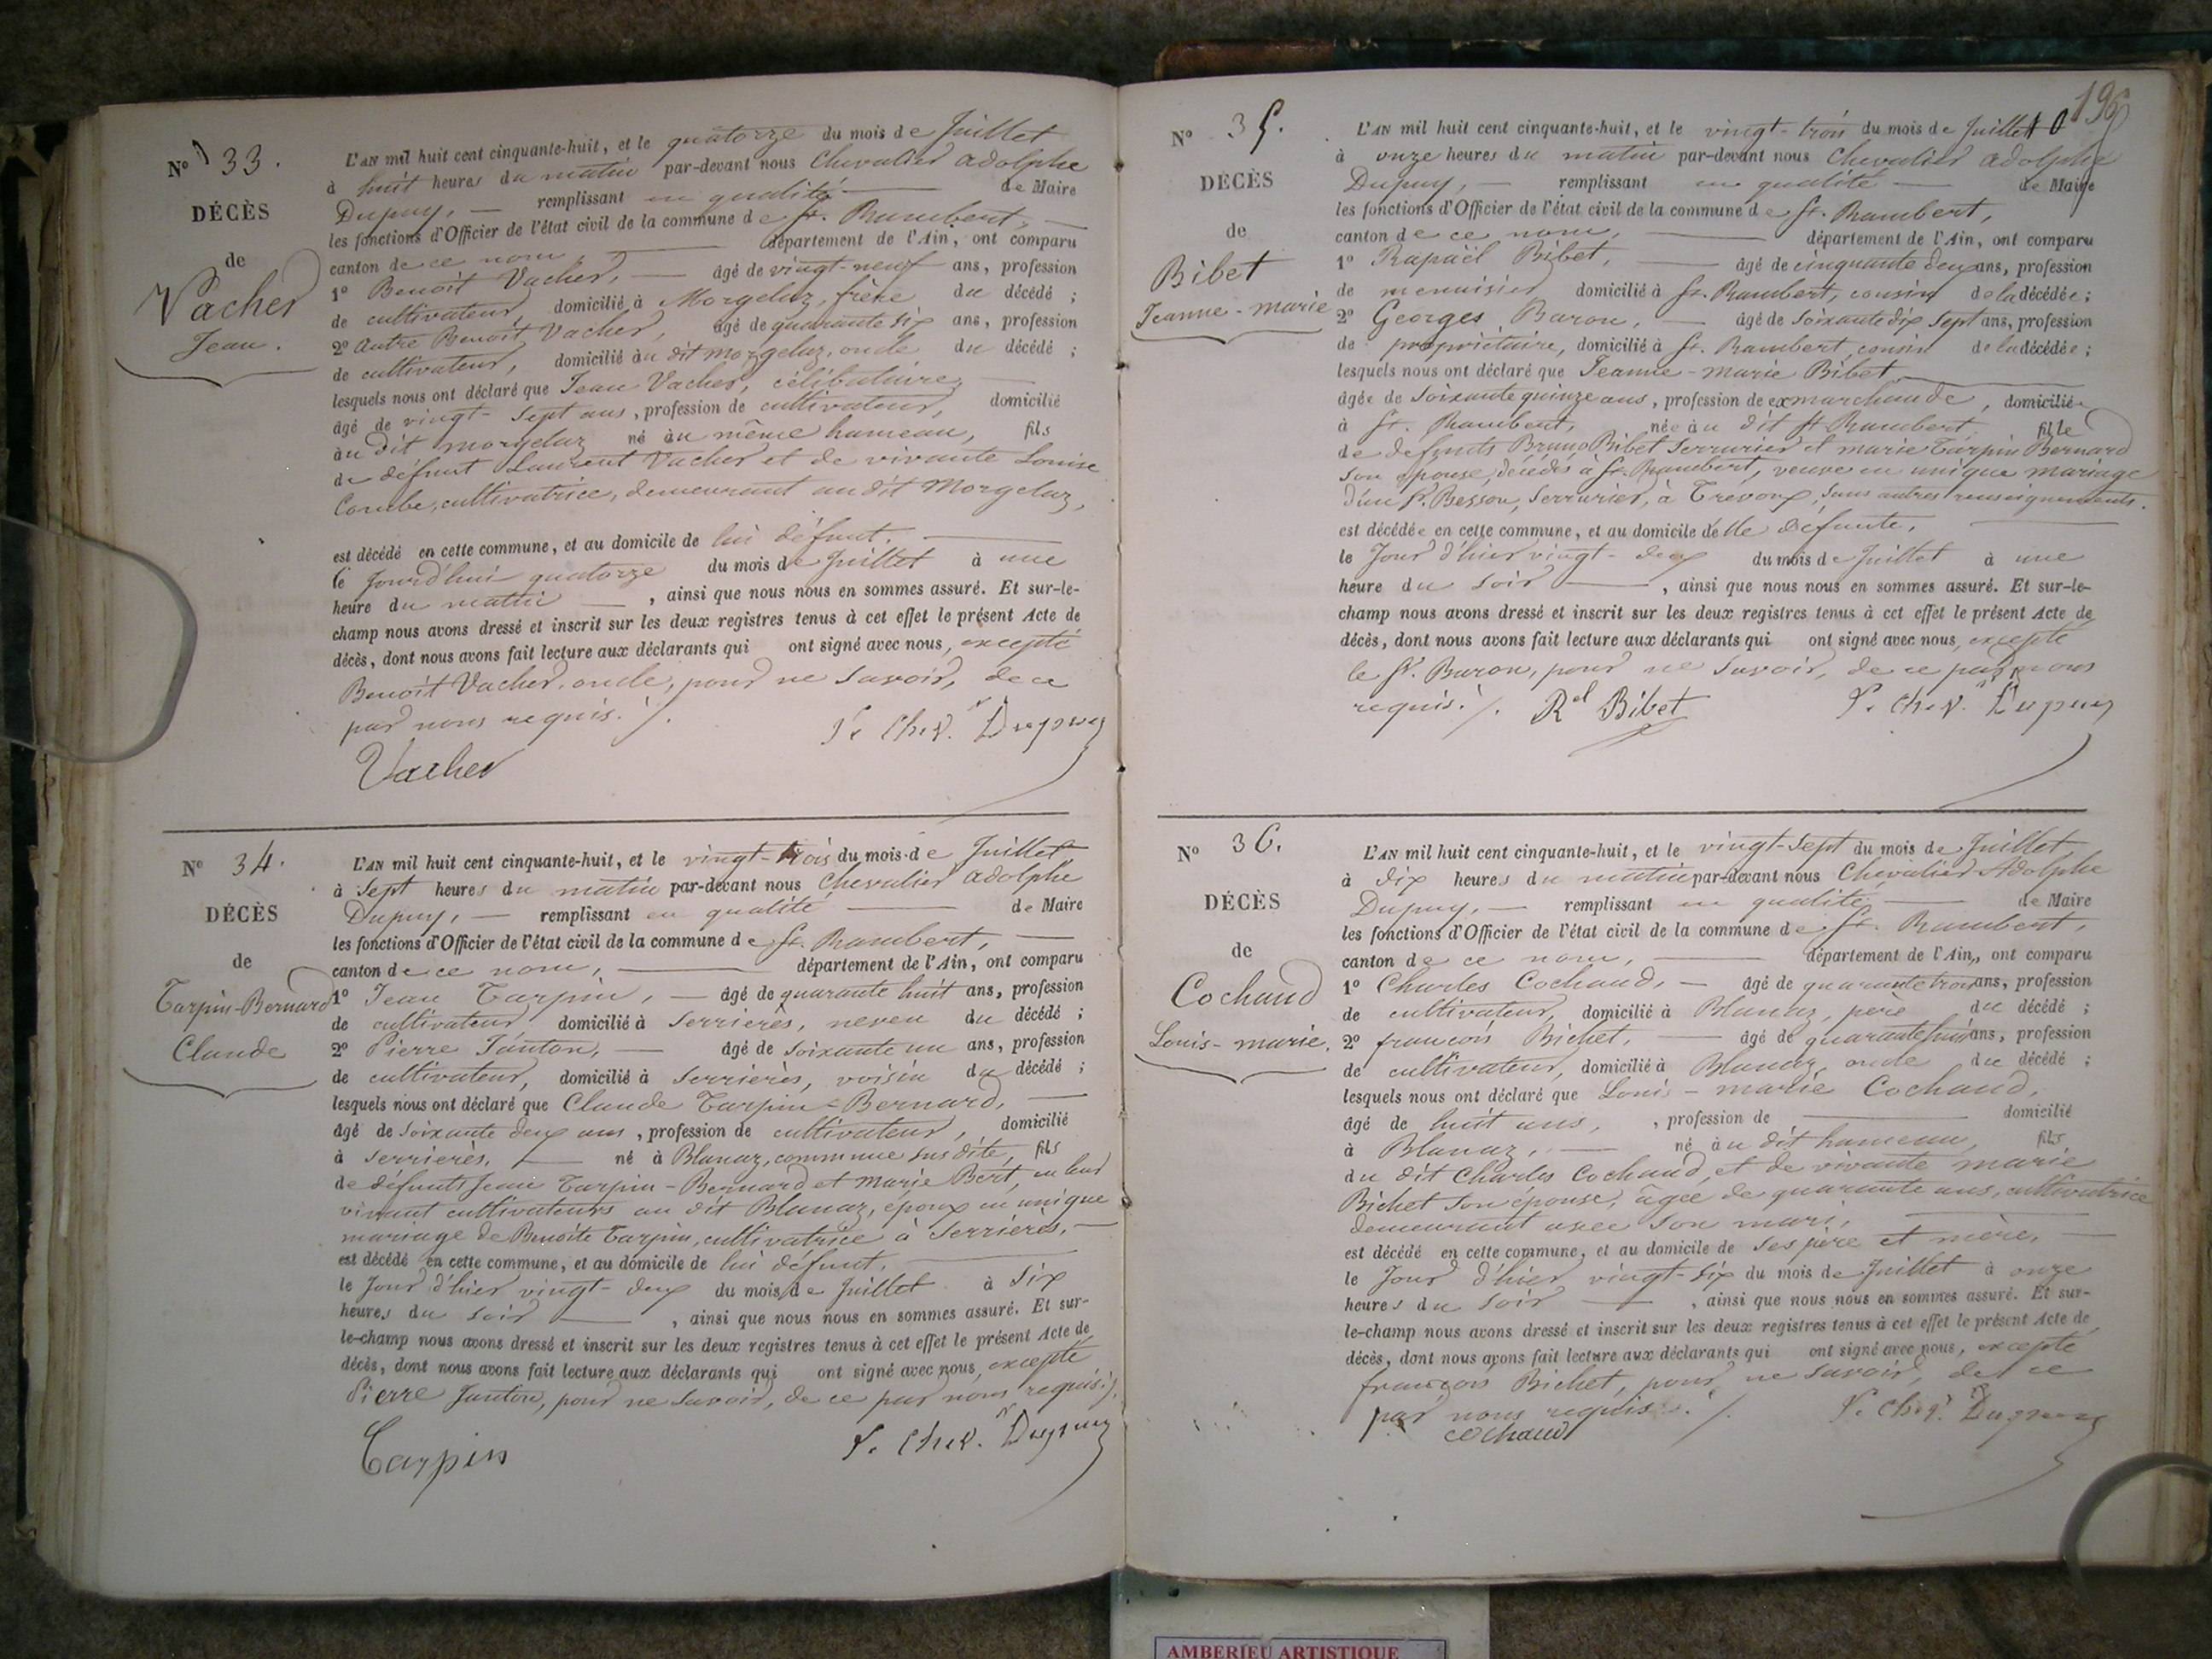 N° 33.
DÉCÈS
de
Vacher
Jean.
L'AN mil huit cent cinquante-huit, et le quatorze du mois de Juillet
à huit heures du matin par-devant nous Chevalier Adolphe
Dupuy, — remplissant en qualité — de Maire
les fonctions d'Officier de l'état civil de la commune de St. Rambert, —
canton de ce nom, — département de l'Ain, ont comparu
1° Benoit Vacher, — âgé de vingt-neuf ans, profession
de cultivateur, domicilié à Morgelaz, frère du décédé ;
2° autre Benoit Vacher, âgé de quarante six ans, profession
de cultivateur, domicilié àu dit morgelaz, oncle du décédé ;
lesquels nous ont déclaré que Jean Vacher, célibataire, —
âgé de vingt-sept ans, profession de cultivateur, domicilié
àu dit morgelaz né àu même hameau, fils
de défunt Laurent Vacher et de vivante Louise
Combe, cultivatrice, demeurant au dit Morgelaz,
est décédé en cette commune, et au domicile de lui défunt. —
le jourd'hui quatorze du mois de Juillet à une
heure du matin —, ainsi que nous nous en sommes assuré. Et sur-le-
champ nous avons dressé et inscrit sur les deux registres tenus à cet effet le présent Acte de
décès, dont nous avons fait lecture aux déclarants qui ont signé avec nous, excepté
Benoit Vacher, oncle, pour ne savoir, de ce
par nous requis. /.
Vacher
Chev. Dupuy
N° 34.
DÉCÈS
de
Tarpin-Bernard
Claude
L'AN mil huit cent cinquante-huit, et le vingt-trois du mois de Juillet
à sept heures du matin par-devant nous Chevalier Adolphe
Dupuy, — remplissant en qualité — de Maire
les fonctions d'Officier de l'état civil de la commune de St. Rambert, —
canton de ce nom, — département de l'Ain, ont comparu
1° Jean Tarpin, — âgé de quarante huit ans, profession
de cultivateur, domicilié à Serrières, neveu du décédé ;
2° Pierre Janton, — âgé de soixante un ans, profession
de cultivateur, domicilié à Serrières, voisin du décédé ;
lesquels nous ont déclaré que Claude Tarpin-Bernard, —
âgé de soixante deux ans, profession de cultivateur, domicilié
à Serrières, — né à Blanaz, commune sus dite, fils
de défunts Jean Tarpin-Bernard et Marie Bert, en leur
vivant cultivateurs au dit Blanaz, époux en unique
mariage de Benoite Tarpin, cultivatrice à Serrières, —
est décédé en cette commune, et au domicile de lui défunt. —
le jour d'hier vingt-deux du mois de Juillet à six
heures du soir —, ainsi que nous nous en sommes assuré. Et sur-
le-champ nous avons dressé et inscrit sur les deux registres tenus à cet effet le présent Acte de
décès, dont nous avons fait lecture aux déclarants qui ont signé avec nous, excepté
Pierre Janton, pour ne savoir, de ce par nous requis. /.
Tarpin
Chev. Dupuy
196
N° 35.
DÉCÈS
de
Bibet
Jeanne-marie
L'AN mil huit cent cinquante-huit, et le vingt-trois du mois de Juillet
à onze heures du matin par-devant nous Chevalier Adolphe
Dupuy, — remplissant en qualité — de Maire
les fonctions d'Officier de l'état civil de la commune de St. Rambert,
canton de ce nom, — département de l'Ain, ont comparu
1° Rapaël Bibet, — âgé de cinquante deux ans, profession
de menuisier domicilié à St. Rambert, cousin de la décédée ;
2° Georges Baron, — âgé de soixante dix sept ans, profession
de propriétaire, domicilié à St. Rambert, cousin de la décédée ;
lesquels nous ont déclaré que Jeanne-Marie Bibet —
âgée de soixante quinze ans, profession de ex marchande, domiciliée
à St. Rambert, née àu dit St Rambert, fille
de défunts Bruno Bibet Serrurier et marie Tarpin Bernard
son épouse, décédés à St. Rambert, veuve en unique mariage
d'un Sr. Besson, Serrurier, à Trévoux, sans autres renseignements.
est décédée en cette commune, et au domicile d'elle défunte, —
le jour d'hier vingt-deux du mois de Juillet à une
heure du soir —, ainsi que nous nous en sommes assuré. Et sur-le-
champ nous avons dressé et inscrit sur les deux registres tenus à cet effet le présent Acte de
décès, dont nous avons fait lecture aux déclarants qui ont signé avec nous, excepté
le Sr. Baron, pour ne savoir, de ce par nous
requis. /.
Rel Bibet
Chev. Dupuy
N° 36.
DÉCÈS
de
Cochaud
Louis-marie.
L'AN mil huit cent cinquante-huit, et le vingt-sept du mois de Juillet
à dix heures du matin par-devant nous Chevalier Adolphe
Dupuy, — remplissant en qualité — de Maire
les fonctions d'Officier de l'état civil de la commune de St. Rambert,
canton de ce nom, — département de l'Ain, ont comparu
1° Charles Cochaud, — âgé de quarante trois ans, profession
de cultivateur, domicilié à Blanaz, père du décédé ;
2° françois Bichet, — âgé de quarante huit ans, profession
de cultivateur, domicilié à Blanaz, oncle du décédé ;
lesquels nous ont déclaré que Louis-marie Cochaud,
âgé de huit ans, , profession de — domicilié
à Blanaz, — né àu dit hameau, fils
du dit Charles Cochaud, et de vivante marie
Bichet son épouse, âgée de quarante ans, cultivatrice
demeurant avec son mari, —
est décédé en cette commune, et au domicile de ses père et mère, —
le jour d'hier vingt-six du mois de Juillet à onze
heures du soir —, ainsi que nous nous en sommes assuré. Et sur-
le-champ nous avons dressé et inscrit sur les deux registres tenus à cet effet le présent Acte de
décès, dont nous avons fait lecture aux déclarants qui ont signé avec nous, excepté
françois Bichet, pour ne savoir, de ce
par nous requis. /.
cochaud
Chev. Dupuy
AMBERIEU ARTISTIQUE